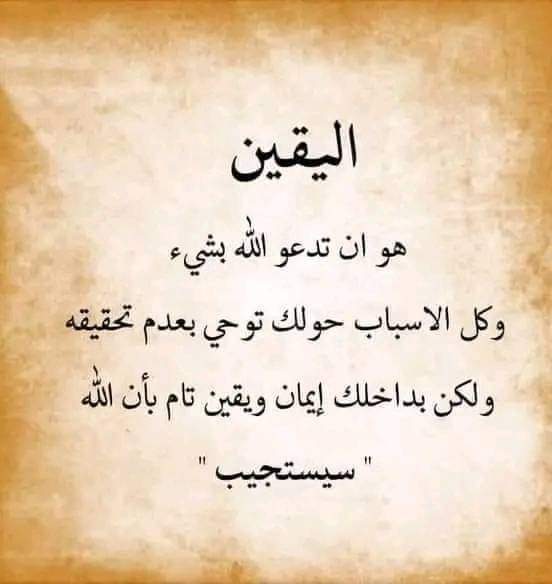 اليقين
هو ان تدعو الله بشيء
وكل الاسباب حولك توحي بعدم تحقيقه
ولكن بداخلك إيمان ويقين تام بأن الله
" سيستجيب "